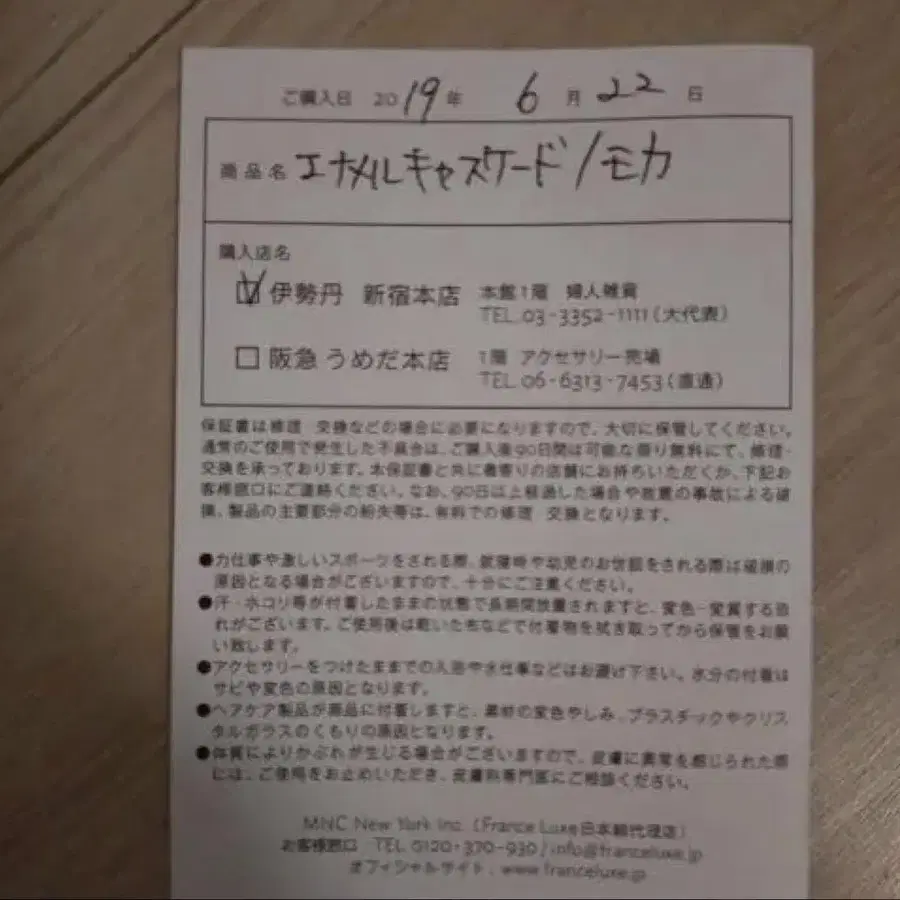 ご購入日 2019年 6月22日
商品名 エナメルキャスケード/モカ
購入店名
伊勢丹 新宿本店 本館1階 婦人雑貨
TEL.03-3352-1111(大代表)
阪急 うめだ本店 1階 アクセサリー売場
TEL.06-6313-7453(直通)
保証書は修理 交換などの場合に必要になりますので、大切に保管してください。
通常のご使用で発生した不具合は、ご購入後90日間は可能な限り無料にて、修理・
交換を承っております。本保証書と共に最寄りの店舗にお持ちいただくか、下記お
客様窓口にご連絡ください。なお、90日以上経過した場合や故意の事故による破
損、製品の主要部分の紛失等は、有料での修理 交換となります。
●力仕事や激しいスポーツをされる際、就寝時や幼児のお世話をされる際は破損の
原因となる場合がございますので、十分にご注意ください。
●汗・ホコリ等が付着したままの状態で長期間放置されますと、変色・変質する恐
れがございます。ご使用後は乾いた布などで付着物を拭き取ってから保管をお願
い致します。
●アクセサリーをつけたままでの入浴や水仕事などはお避け下さい。水分の付着は
サビや変色の原因となります。
●ヘアケア製品が商品に付着しますと、素材の変色やしみ、プラスチックやクリス
タルガラスのくもりの原因となります。
●体質によりかぶれが生じる場合がございますので、皮膚に異常を感じられた際
には、ご使用をお止めいただき、皮膚科専門医にご相談ください。
MNC New York Inc.(France Luxe日本総代理店)
お客様窓口 TEL 0120-370-930/info@franceluxe.jp
オフィシャルサイト:www.franceluxe.jp